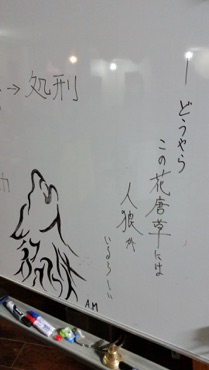 →処刑
どうやら
この花唐草には
人狼が
いるらしい
A.M